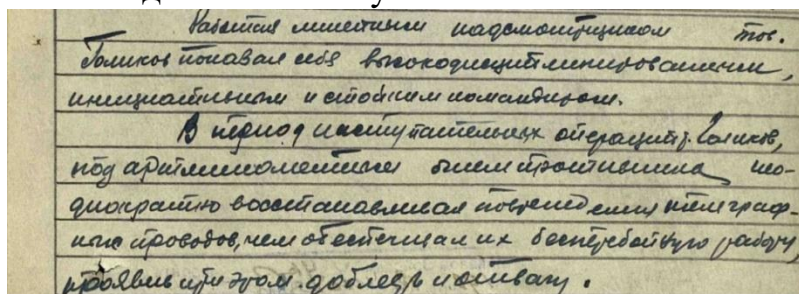 Работая линейным надсмотрщиком тов.
Голиков показал себя высокодисциплинированным,
инициативным и стойким командиром.
В период наступательных операций т. Голиков,
под артминометным огнем противника, нео-
днократно восстанавливал повреждения телеграф-
ных проводов, чем обеспечивал их бесперебойную работу,
проявив при этом доблесть и отвагу.